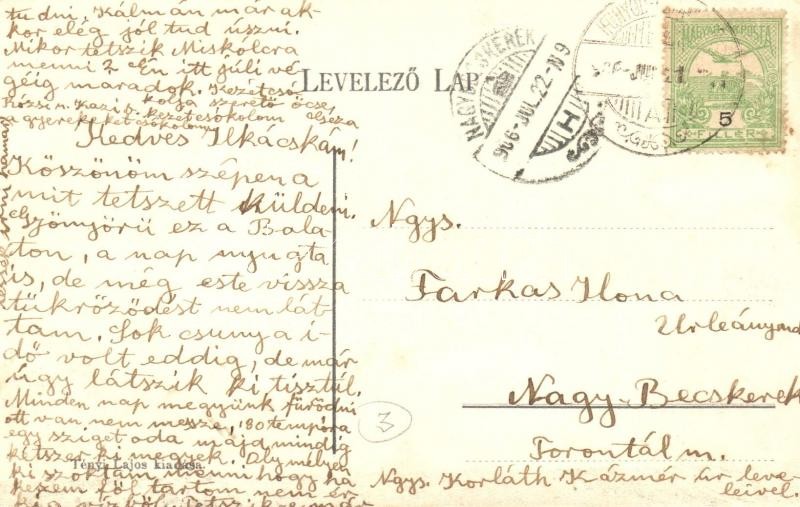 tudni, Kálmán már ak-
kor elég jól tud úszni.
Mikor tetszik Miskolcra
menni? Én itt júli vé-
géig maradok. Kezétcsó
kolja szerető öcse,
kezetcsókolom
a gyerekeket csókolom
Kedves Ilkácskám!
Köszönöm szépen a
mit tetszett küldeni.
Gyönyörü ez a Bala-
ton, a nap nyugta
is, de még este vissza
tükröződést nem lát-
tam. Sok csunya i-
dő volt eddig, de már
úgy látszik ki tisztúl.
Minden nap megyünk fürödni
ott van, nem messze, 80 tempóra
egy sziget oda majd mindig
kétszer ki megyek. Oly mélyen
ki szoktam menni hogy ha
kezem föl tartom nem ér
Tényi Lajos kiadása.
LEVELEZŐ LAP
NAGYBECSKEREK
906 JUL. 22 N9
906 JUL 21
MAGYAR KIR. POSTA
5
FILLÉR
Ngys.
Farkas Ilona
Urleánynak
Nagy-Becskerek
Torontál m.
Ngys. Korláth Kázmér úr leve-
leivel.
3